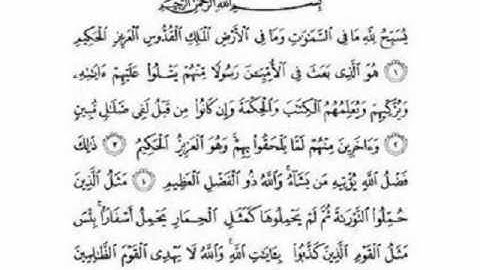 بِسْمِ اللَّهِ الرَّحْمَٰنِ الرَّحِيمِ
يُسَبِّحُ لِلَّهِ مَا فِي السَّمَٰوَٰتِ وَمَا فِي الْأَرْضِ الْمَلِكِ الْقُدُّوسِ الْعَزِيزِ الْحَكِيمِ
١ هُوَ الَّذِي بَعَثَ فِي الْأُمِّيِّـۧنَ رَسُولًا مِّنْهُمْ يَتْلُوا۟ عَلَيْهِمْ ءَايَٰتِهِۦ
وَيُزَكِّيهِمْ وَيُعَلِّمُهُمُ الْكِتَٰبَ وَالْحِكْمَةَ وَإِن كَانُوا۟ مِن قَبْلُ لَفِي ضَلَٰلٍ مُّبِينٍ
٢ وَءَاخَرِينَ مِنْهُمْ لَمَّا يَلْحَقُوا۟ بِهِمْ وَهُوَ الْعَزِيزُ الْحَكِيمُ ٣ ذَٰلِكَ
فَضْلُ اللَّهِ يُؤْتِيهِ مَن يَشَآءُ وَاللَّهُ ذُو الْفَضْلِ الْعَظِيمِ ٤ مَثَلُ الَّذِينَ
حُمِّلُوا۟ التَّوْرَىٰةَ ثُمَّ لَمْ يَحْمِلُوهَا كَمَثَلِ الْحِمَارِ يَحْمِلُ أَسْفَارًا بِئْسَ
مَثَلُ الْقَوْمِ الَّذِينَ كَذَّبُوا۟ بِـَٔايَٰتِ اللَّهِ وَاللَّهُ لَا يَهْدِي الْقَوْمَ الظَّٰلِمِينَ